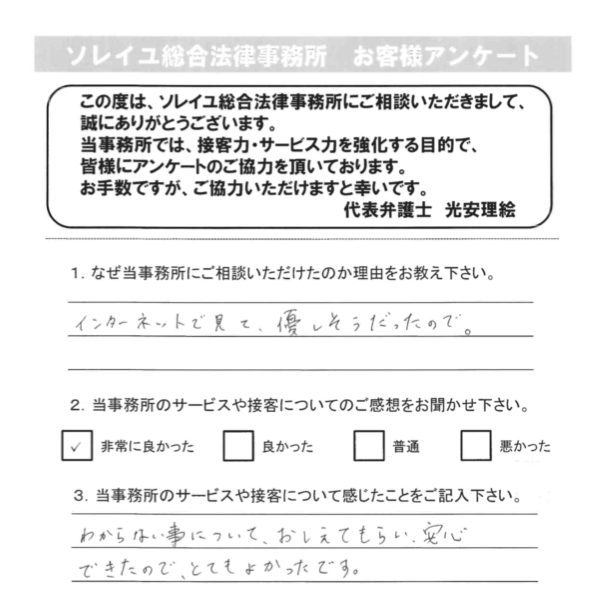 ソレイユ総合法律事務所　お客様アンケート
この度は、ソレイユ総合法律事務所にご相談いただきまして、
誠にありがとうございます。
当事務所では、接客力・サービス力を強化する目的で、
皆様にアンケートのご協力を頂いております。
お手数ですが、ご協力いただけますと幸いです。
代表弁護士　光安理絵
1．なぜ当事務所にご相談いただけたのか理由をお教え下さい。
インターネットで見て、優しそうだったので。
2．当事務所のサービスや接客についてのご感想をお聞かせ下さい。
✓ 非常に良かった　良かった　普通　悪かった
3．当事務所のサービスや接客について感じたことをご記入下さい。
わからない事について、おしえてもらい、安心
できたので、とてもよかったです。